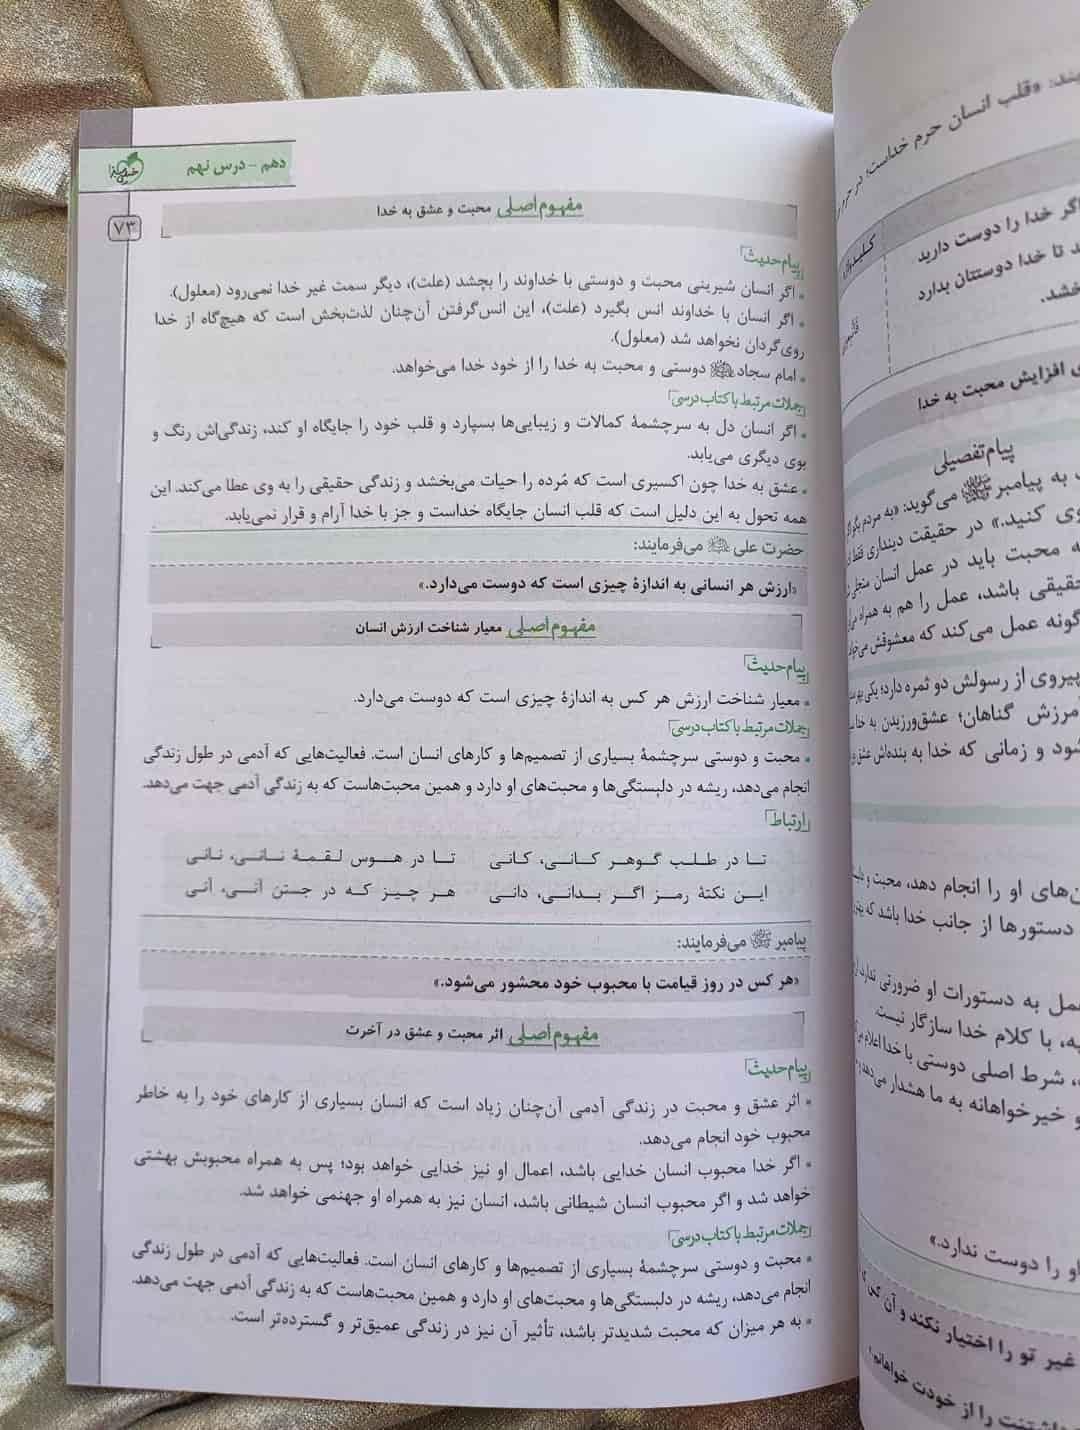 دهم - درس نهم
خیلی سبز
۷۳
مفهوم اصلی محبت و عشق به خدا
پیام حدیث
• اگر انسان شیرینی محبت و دوستی با خداوند را بچشد (علت)، دیگر سمت غیر خدا نمی‌رود (معلول).
• اگر انسان با خداوند انس بگیرد (علت)، این انس‌گرفتن آن‌چنان لذت‌بخش است که هیچ‌گاه از خدا
روی‌گردان نخواهد شد (معلول).
• امام سجاد دوستی و محبت به خدا را از خود خدا می‌خواهد.
جملات مرتبط با کتاب درسی
• اگر انسان دل به سرچشمهٔ کمالات و زیبایی‌ها بسپارد و قلب خود را جایگاه او کند، زندگی‌اش رنگ و
بوی دیگری می‌یابد.
• عشق به خدا چون اکسیری است که مُرده را حیات می‌بخشد و زندگی حقیقی را به وی عطا می‌کند. این
همه تحول به این دلیل است که قلب انسان جایگاه خداست و جز با خدا آرام و قرار نمی‌یابد.
حضرت علی می‌فرمایند:
«ارزش هر انسانی به اندازهٔ چیزی است که دوست می‌دارد.»
مفهوم اصلی معیار شناخت ارزش انسان
پیام حدیث
• معیار شناخت ارزش هر کس به اندازهٔ چیزی است که دوست می‌دارد.
جملات مرتبط با کتاب درسی
• محبت و دوستی سرچشمهٔ بسیاری از تصمیم‌ها و کارهای انسان است. فعالیت‌هایی که آدمی در طول زندگی
انجام می‌دهد، ریشه در دلبستگی‌ها و محبت‌های او دارد و همین محبت‌هاست که به زندگی آدمی جهت می‌دهد.
ارتباط
تا در طلب گوهر کانی، کانی تا در هوس لقمهٔ نانی، نانی
این نکتهٔ رمز اگر بدانی، دانی هر چیز که در جستن آنی، آنی
پیامبر ﷺ می‌فرمایند:
«هر کس در روز قیامت با محبوب خود محشور می‌شود.»
مفهوم اصلی اثر محبت و عشق در آخرت
پیام حدیث
• اثر عشق و محبت در زندگی آدمی آن‌چنان زیاد است که انسان بسیاری از کارهای خود را به خاطر
محبوب خود انجام می‌دهد.
• اگر خدا محبوب انسان خدایی باشد، اعمال او نیز خدایی خواهد بود؛ پس به همراه محبوبش بهشتی
خواهد شد و اگر محبوب انسان شیطانی باشد، انسان نیز به همراه او جهنمی خواهد شد.
جملات مرتبط با کتاب درسی
• محبت و دوستی سرچشمهٔ بسیاری از تصمیم‌ها و کارهای انسان است. فعالیت‌هایی که آدمی در طول زندگی
انجام می‌دهد، ریشه در دلبستگی‌ها و محبت‌های او دارد و همین محبت‌هاست که به زندگی آدمی جهت می‌دهد.
• به هر میزان که محبت شدیدتر باشد، تأثیر آن نیز در زندگی عمیق‌تر و گسترده‌تر است.
«قلب انسان حرم خداست؛ در حرم
اگر خدا را دوست دارید
تا خدا دوستتان بدارد
افزایش محبت به خدا
پیام تفصیلی
به پیامبر ﷺ می‌گوید: «به مردم بگو
کنید.» در حقیقت دینداری فقط
محبت باید در عمل انسان متجلی
حقیقی باشد، عمل را هم به همراه
عمل می‌کند که معشوقش
پیروی از رسولش دو ثمره دارد؛ یکی
گناهان؛ عشق‌ورزیدن به خدا
و زمانی که خدا به بنده‌اش عشق
او را انجام دهد، محبت و
دستورها از جانب خدا باشد که
به دستورات او ضرورتی ندارد
با کلام خدا سازگار نیست.
شرط اصلی دوستی با خدا اعلام
و خیرخواهانه به ما هشدار می‌دهد
او را دوست ندارد.»
غیر تو را اختیار نکند و آن کس
را از خودت خواهانم